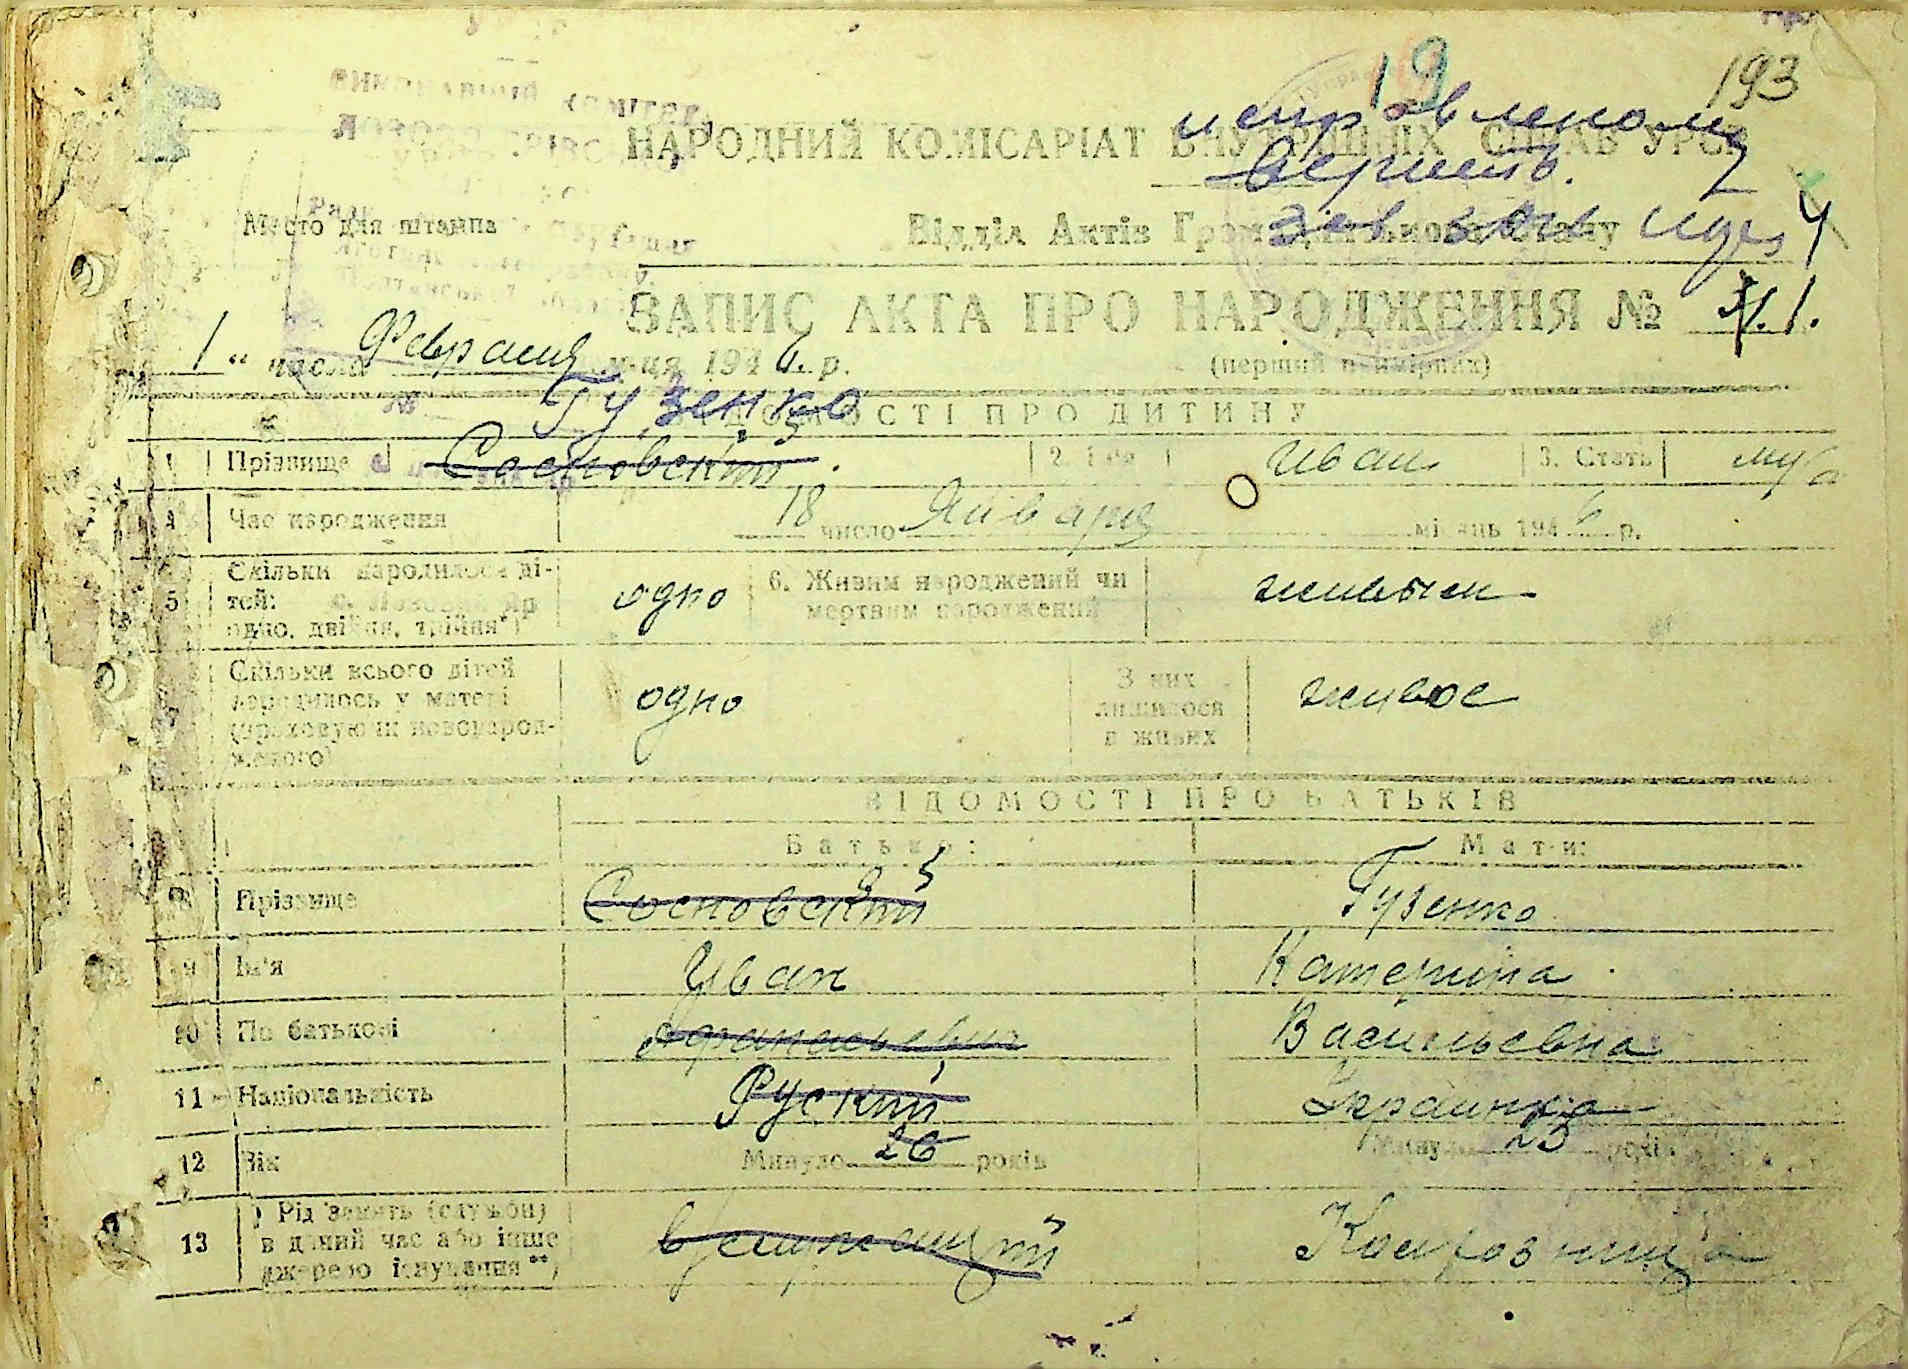 19
193
исправленому
НАРОДНИЙ КОМІСАРІАТ ВНУТРІШНІХ СПРАВ УРСР
верить.
Место для штампа
Відділ Актів Громадянського Стану
ЗАПИС АКТА ПРО НАРОДЖЕННЯ №
1 " числа Февраля м-ця 1946 р.
(перший примірник)
Гузенко
ВІДОМОСТІ ПРО ДИТИНУ
1 Прізвище Сосновский 2. Ім'я Иван 3. Стать муж
4 Час народження 18 число Января місяць 1946 р.
5 Скільки народилося дітей: одно, двійня, трійня*) одно 6. Живим народжений чи мертвим народжений живым
7 Скільки всього дітей народилось у матері (враховуючи новонародженого) одно З них лишилося в живих живое
ВІДОМОСТІ ПРО БАТЬКІВ
Батько: Мати:
8 Прізвище Сосновский Гузенко
9 Ім'я Иван Катерина
10 По батькові Афанасьевич Васильевна
11 Національність Руский Украинка
12 Вік Минуло 26 років Минуло 23 років
13 Рід занять (служби) в даний час або інше джерело існування**) Колгозница